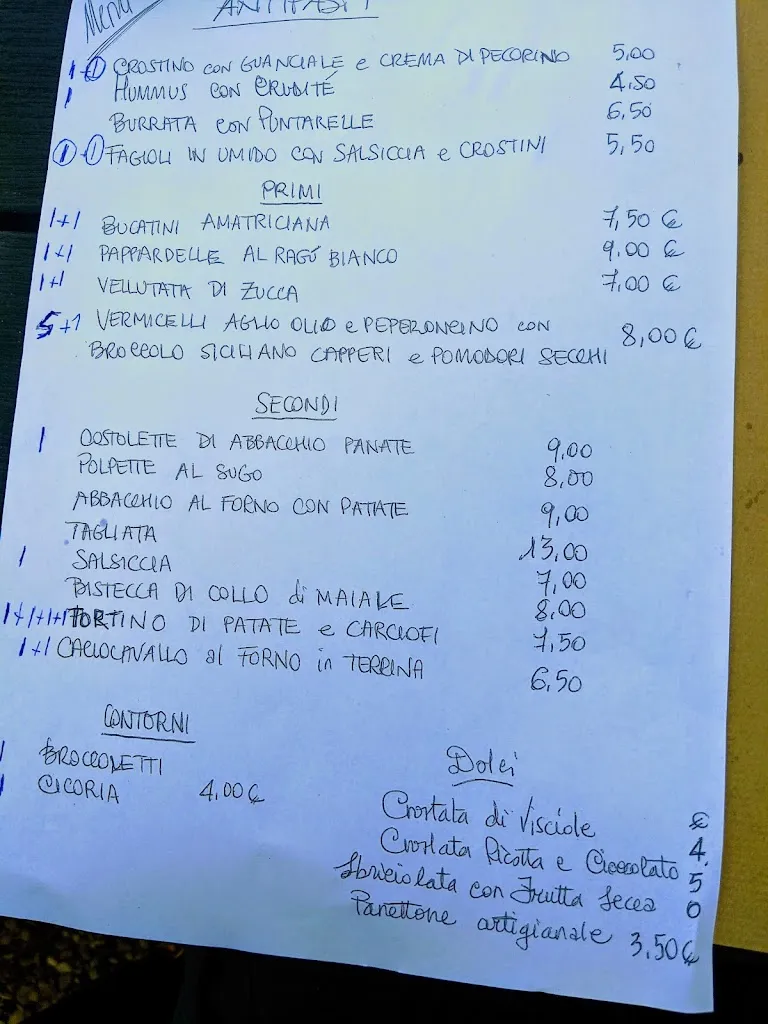 Menu
ANTIPASTI
1+① CROSTINO CON GUANCIALE e CREMA DI PECORINO 5,00
1 HUMMUS CON CRUDITÉ 4,50
BURRATA CON PUNTARELLE 6,50
①-① FAGIOLI IN UMIDO CON SALSICCIA e CROSTINI 5,50
PRIMI
1+1 BUCATINI AMATRICIANA 7,50 €
1+1 PAPPARDELLE AL RAGÚ BIANCO 9,00 €
1+1 VELLUTATA DI ZUCCA 7,00 €
5+1 VERMICELLI AGLIO OLIO e PEPERONCINO CON
BROCCOLO SICILIANO CAPPERI e POMODORI SECCHI 8,00 €
SECONDI
1 COSTOLETTE DI ABBACCHIO PANATE 9,00
POLPETTE AL SUGO 8,00
ABBACCHIO AL FORNO CON PATATE 9,00
TAGLIATA 13,00
1 SALSICCIA 7,00
BISTECCA DI COLLO di MAIALE 8,00
1+1+1+1 TORTINO DI PATATE e CARCIOFI 7,50
1+1 CACIOCAVALLO al FORNO in TERRINA 6,50
CONTORNI
1 BROCCOLETTI
1 CICORIA 4,00 €
Dolci
Crostata di Visciole €
Crostata Ricotta e Cioccolato 4,
Sbriciolata con Frutta Secca 5
0
Panettone artigianale 3,50 €